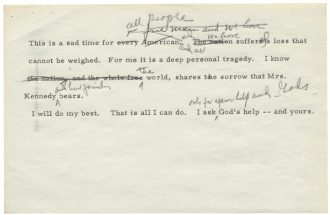 all people
free man and we have
This is a sad time for every American. The nation suffers a loss that
we have
cannot be weighed. For me it is a deep personal tragedy. I know
the
the nation, and the whole free world, shares the sorrow that Mrs.
Kennedy bears.
only for your help and God's
I will do my best. That is all I can do. I ask God's help -- and yours.